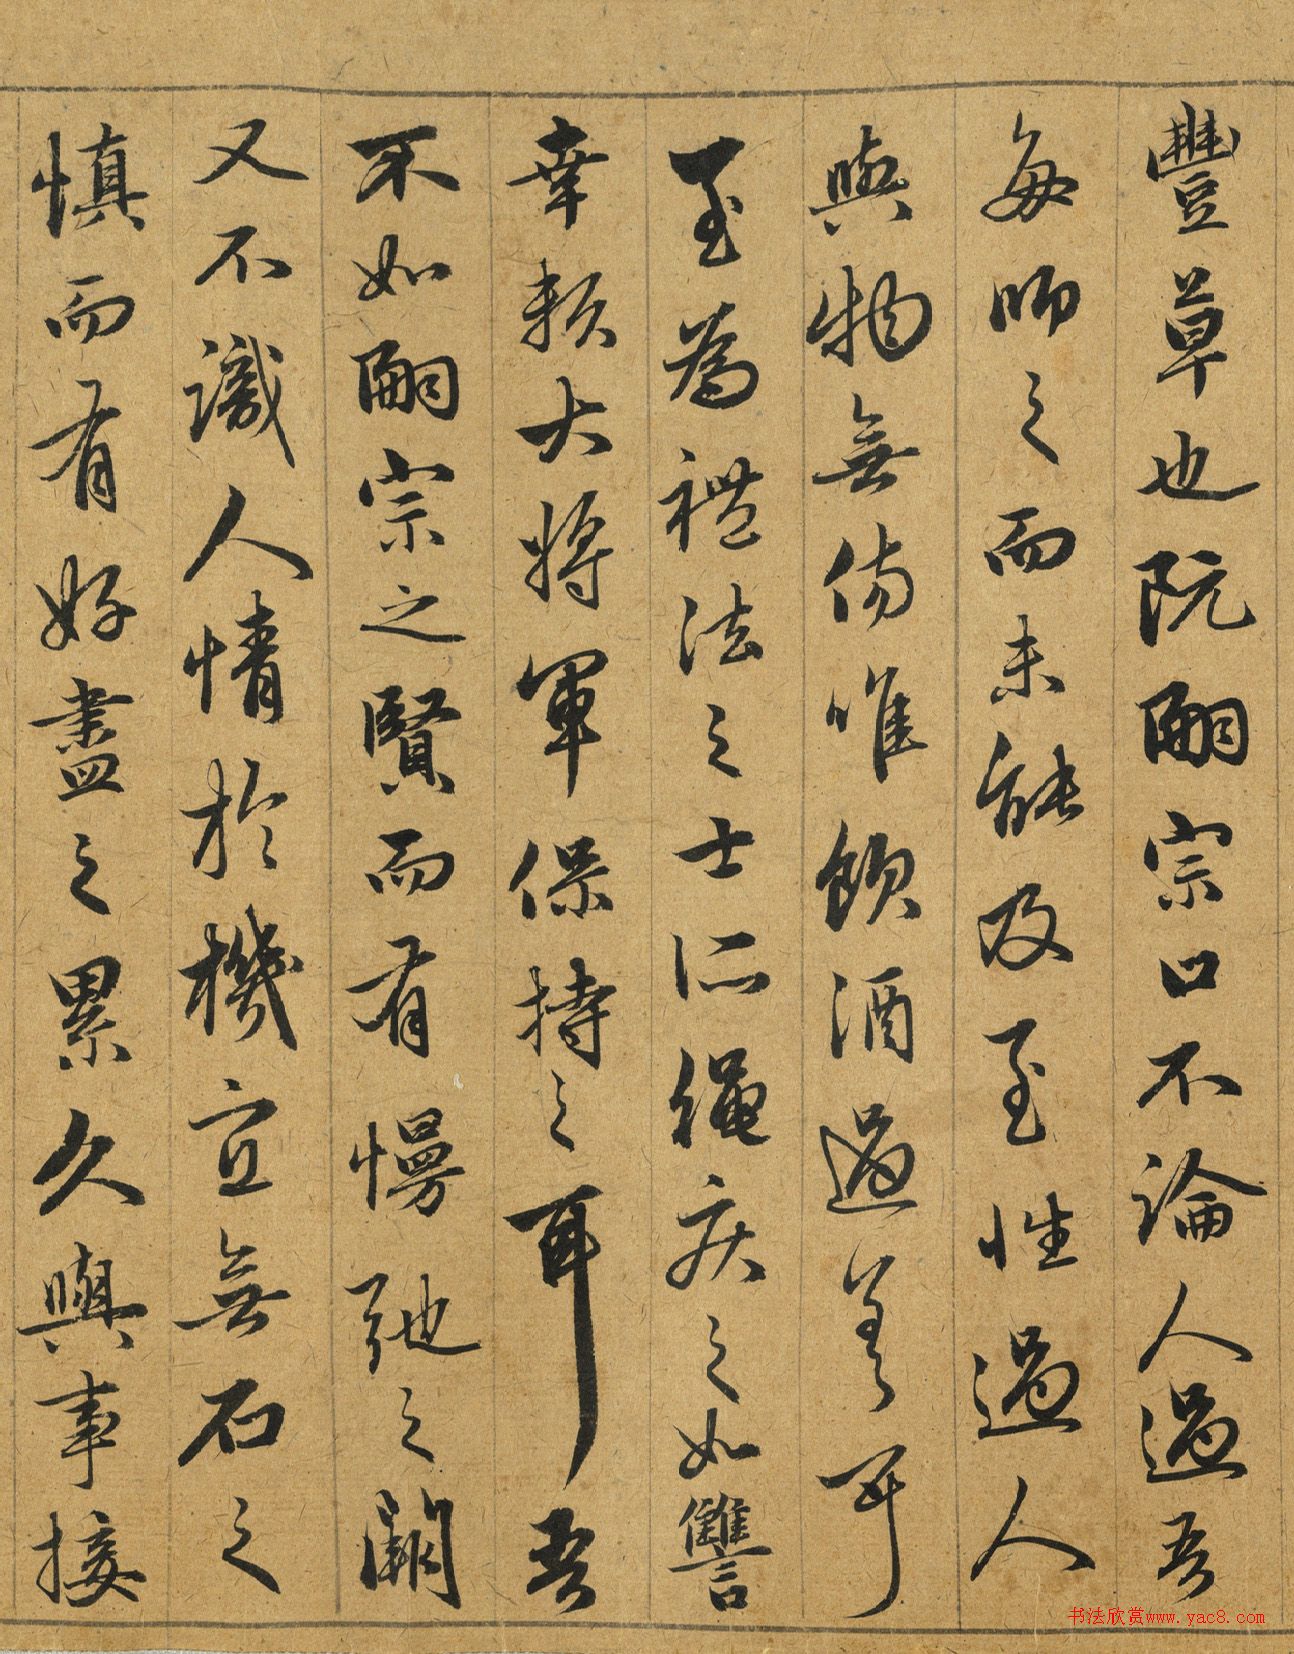 豐草也阮嗣宗口不論人過吾
每師之而未能及至性過人
與物無傷唯飲酒過差耳
至為禮法之士所繩疾之如讐
幸賴大將軍保持之耳吾
不如嗣宗之賢而有慢弛之闕
又不識人情於機宜無石之
慎而有好盡之累久與事接
书法欣赏www.yac8.com